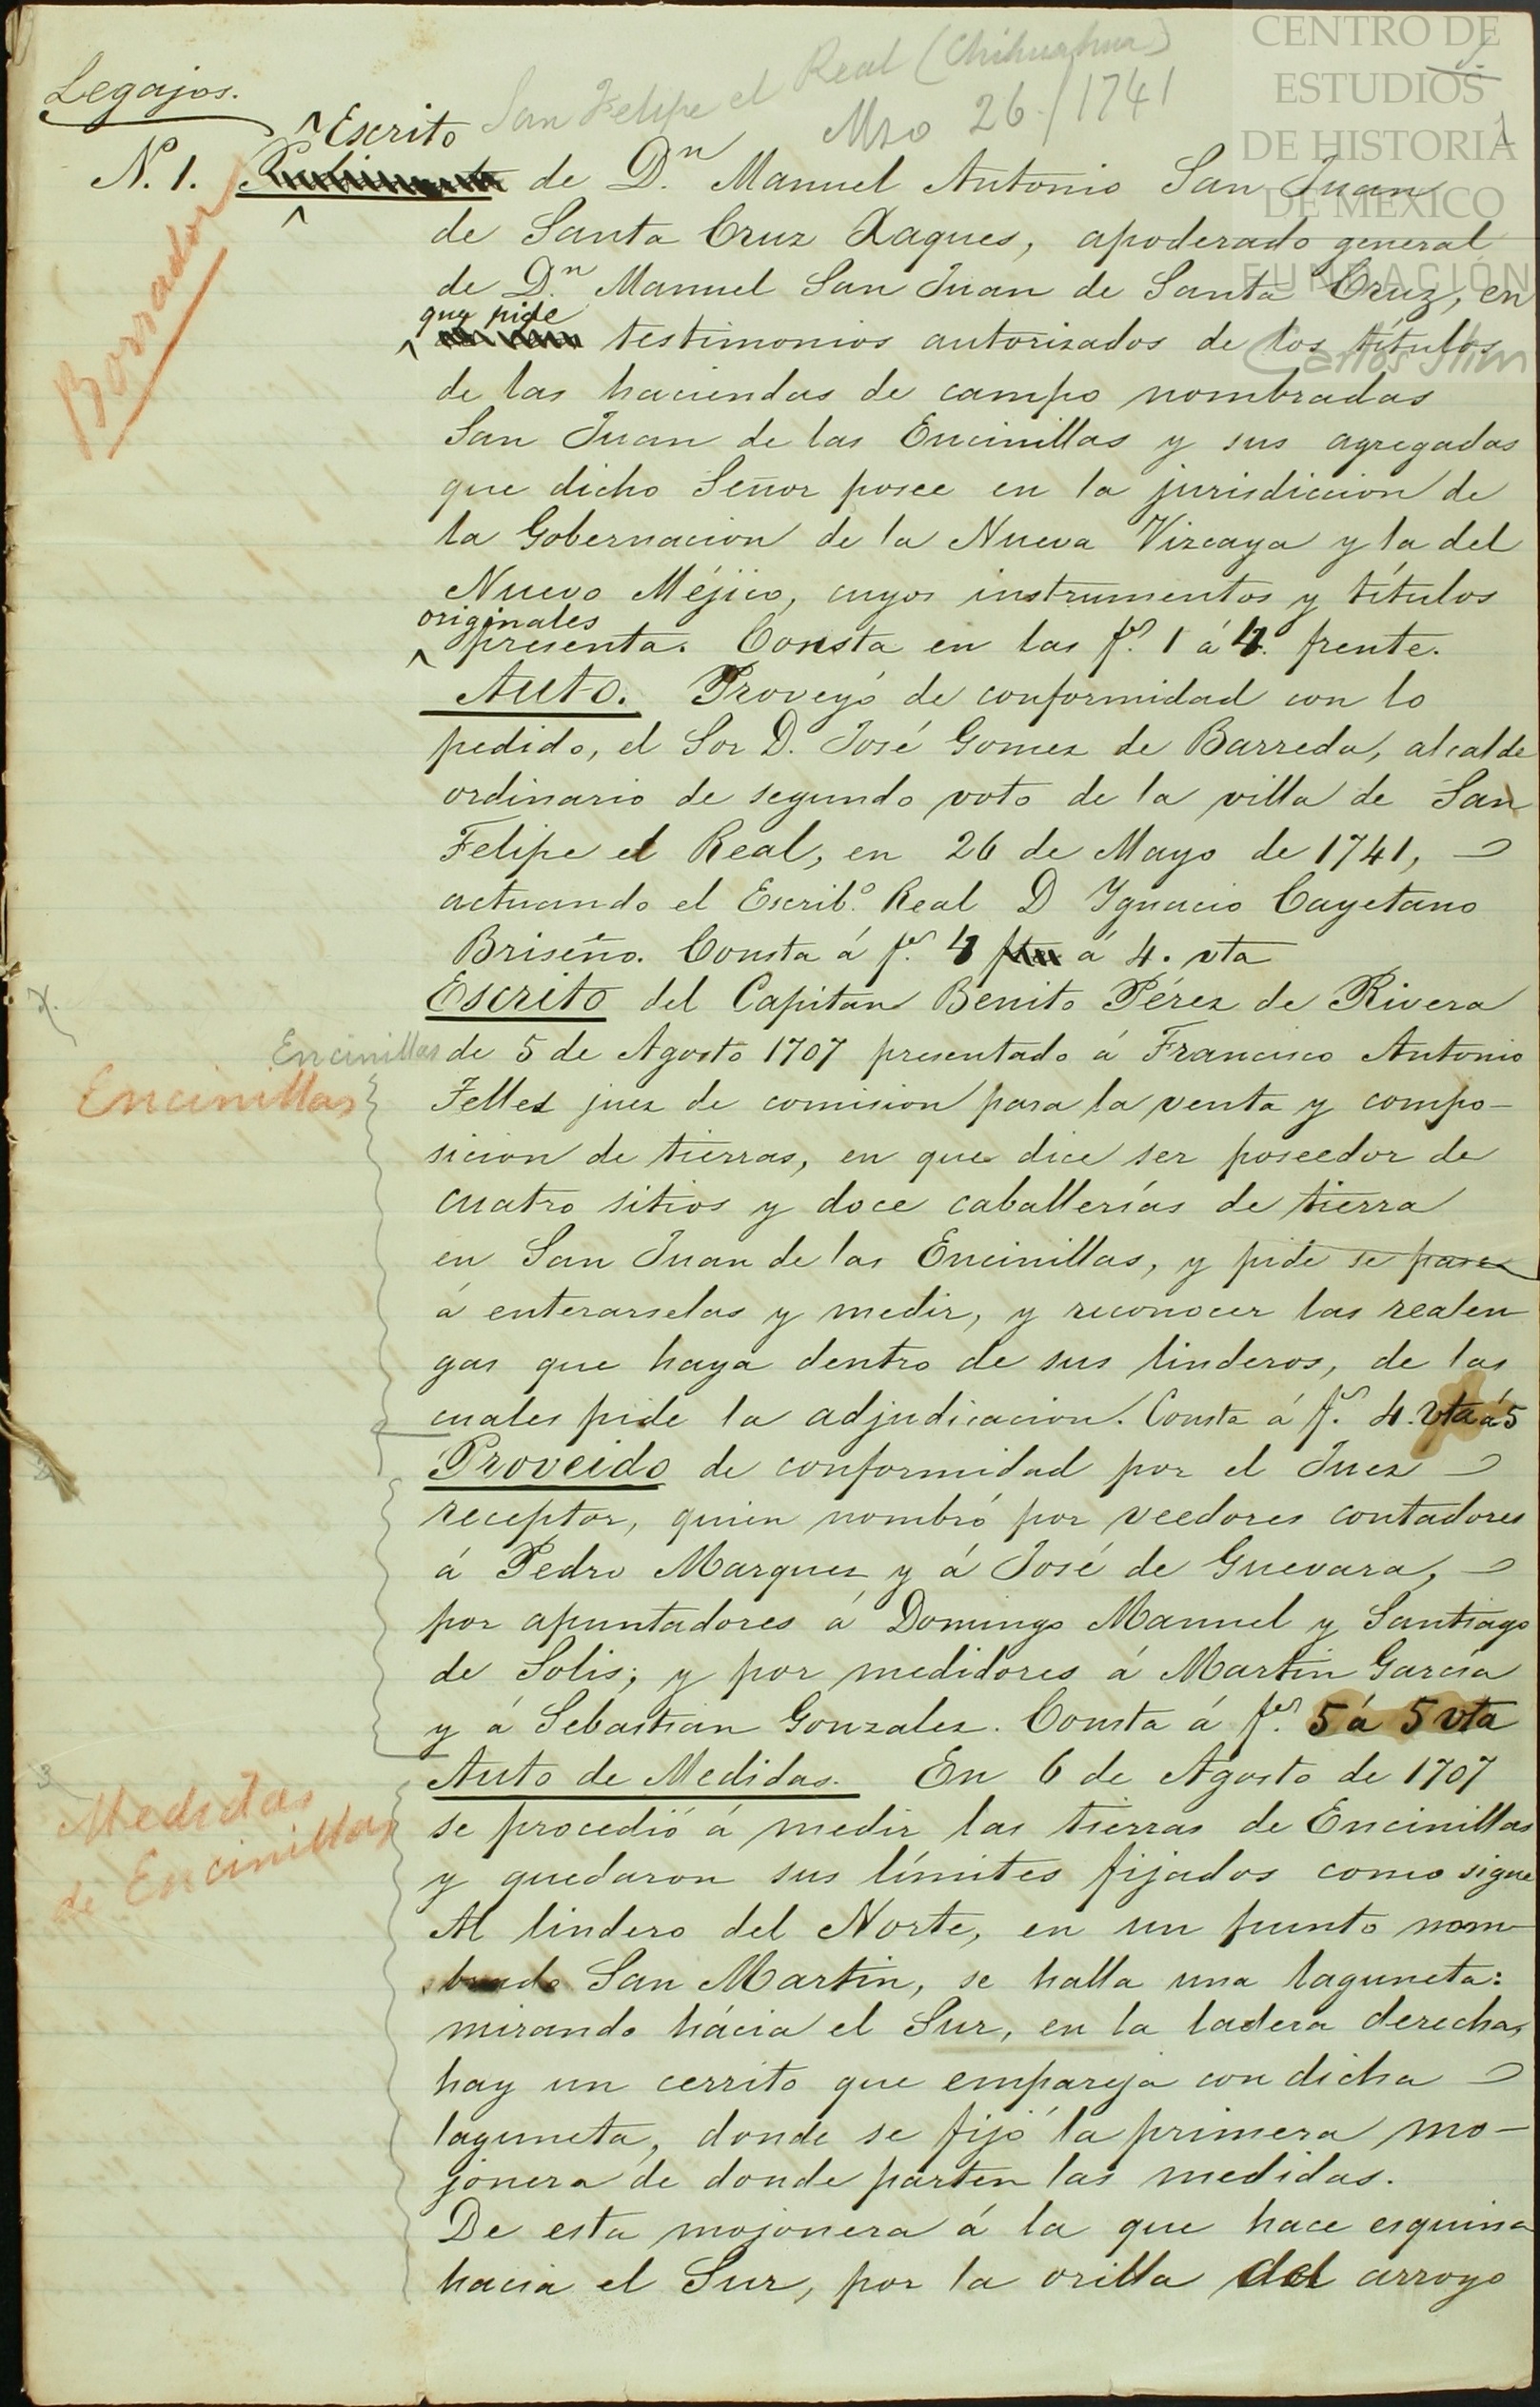 CENTRO DE
ESTUDIOS
DE HISTORIA
DE MÉXICO
FUNDACIÓN
Carlos Slim
San Felipe el Real (Chihuahua)
Mzo 26/1741
Legajos.
Borrador
N. 1. Escrito de Dn. Manuel Antonio San Juan
de Santa Cruz Xaques, apoderado general
de Dn. Manuel San Juan de Santa Cruz, en
que pide testimonios autorizados de los títulos
de las haciendas de campo nombradas
San Juan de las Encinillas y sus agregadas
que dicho Señor posee en la jurisdiccion de
la Gobernacion de la Nueva Vizcaya y la del
Nuevo Méjico, cuyos instrumentos y títulos
originales presenta. Consta en las fs. 1 á 4. frente.
Auto. Proveyó de conformidad con lo
pedido, el Sor D. José Gomez de Barreda, alcalde
ordinario de segundo voto de la villa de San
Felipe el Real, en 26 de Mayo de 1741,
actuando el Escribo. Real D Ygnacio Cayetano
Briseño. Consta á fs. 4 á 4. vta
Escrito del Capitan Benito Pérez de Rivera
Encinillas
Encinillas
de 5 de Agosto 1707 presentado á Francisco Antonio
Fellez juez de comision para la venta y compo-
sicion de tierras, en que dice ser poseedor de
cuatro sitios y doce caballerías de tierra
en San Juan de las Encinillas, y pide se pase
á enterarselas y medir, y reconocer las realen
gas que haya dentro de sus linderos, de las
cuales pide la adjudicacion. Consta á fs. 4. vta á 5
Proveido de conformidad por el Juez
receptor, quien nombró por veedores contadores
á Pedro Marquez y á José de Guevara,
por apuntadores á Domingo Manuel y Santiago
de Solis; y por medidores á Martin García
y á Sebastian Gonzalez. Consta á fs. 5 á 5 vta
3
Medidas
de Encinillas
Auto de Medidas. En 6 de Agosto de 1707
se procedió á medir las tierras de Encinillas
y quedaron sus límites fijados como sigue
Al lindero del Norte, en un punto nom
brado San Martin, se halla una laguneta:
mirando hácia el Sur, en la ladera derecha,
hay un cerrito que empareja con dicha
laguneta, donde se fijó la primera mo-
jonera de donde parten las medidas.
De esta mojonera á la que hace esquina
hacia el Sur, por la orilla del arroyo